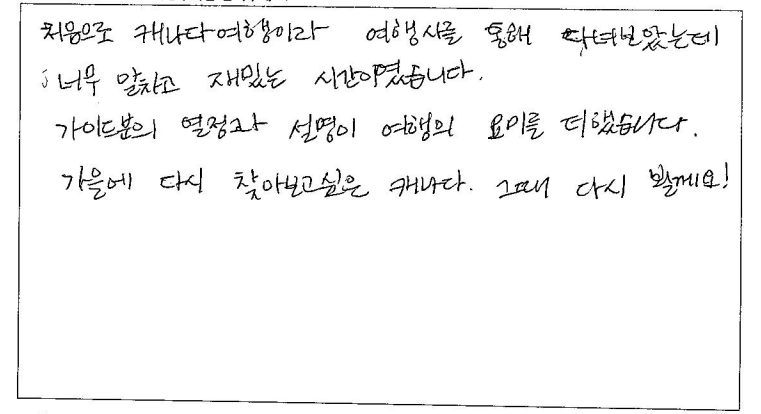 처음으로 캐나다여행이라 여행사를 통해 다녀보았는데
너무 알차고 재밌는 시간이였습니다.
가이드분의 열정과 설명이 여행의 묘미를 더했습니다.
가을에 다시 찾아보고싶은 캐나다. 그때 다시 뵐께요!